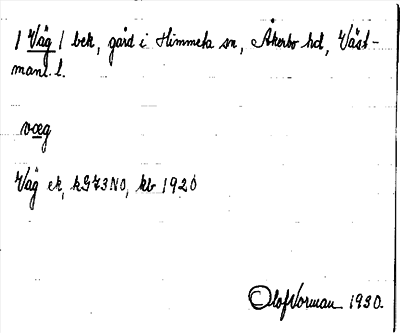 / Våg / bek, gård i Himmeta sn, Åkerbo hd, Väst-
manl. l.
vœg
Våg ek, kG73NO, kb 1920
Olof Norman 1930.